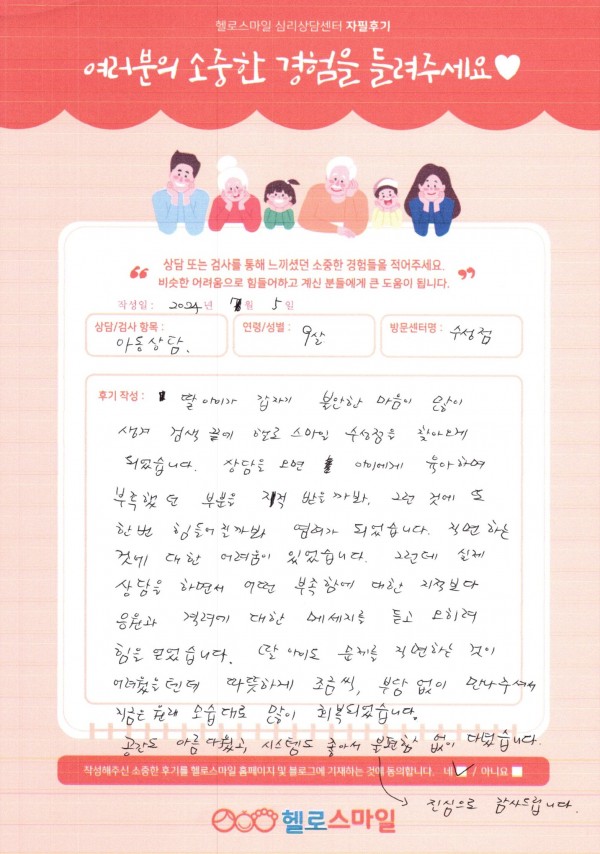 헬로스마일 심리상담센터 자필후기
여러분의 소중한 경험을 들려주세요♥
상담 또는 검사를 통해 느끼셨던 소중한 경험들을 적어주세요.
비슷한 어려움으로 힘들어하고 계신 분들에게 큰 도움이 됩니다.
작성일 : 2024년 7월 5일
상담/검사 항목 : 아동상담.
연령/성별 : 9살
방문센터명 : 수성점
후기 작성 : 딸 아이가 갑자기 불안한 마음이 많이
생겨 검색 끝에 헬로 스마일 수성점을 찾아오게
되었습니다. 상담을 오면 아이에게 육아하며
부족했던 부분을 지적 받을까봐, 그런 것에 또
한번 힘들어질까봐 염려가 되었습니다. 직면하는
것에 대한 어려움이 있었습니다. 그런데 실제
상담을 하면서 어떤 부족함에 대한 지적보다
응원과 격려에 대한 메세지를 듣고 오히려
힘을 얻었습니다. 딸 아이도 문제를 직면하는 것이
어려웠을텐데 따뜻하게 조금씩, 부담 없이 만나주셔서
지금은 원래 모습대로 많이 회복되었습니다.
공간도 아름다웠고, 시스템도 좋아서 불편함 없이 다녔습니다.
작성해주신 소중한 후기를 헬로스마일 홈페이지 및 블로그에 기재하는 것에 동의합니다. 네 / 아니요
진심으로 감사드립니다.
헬로스마일